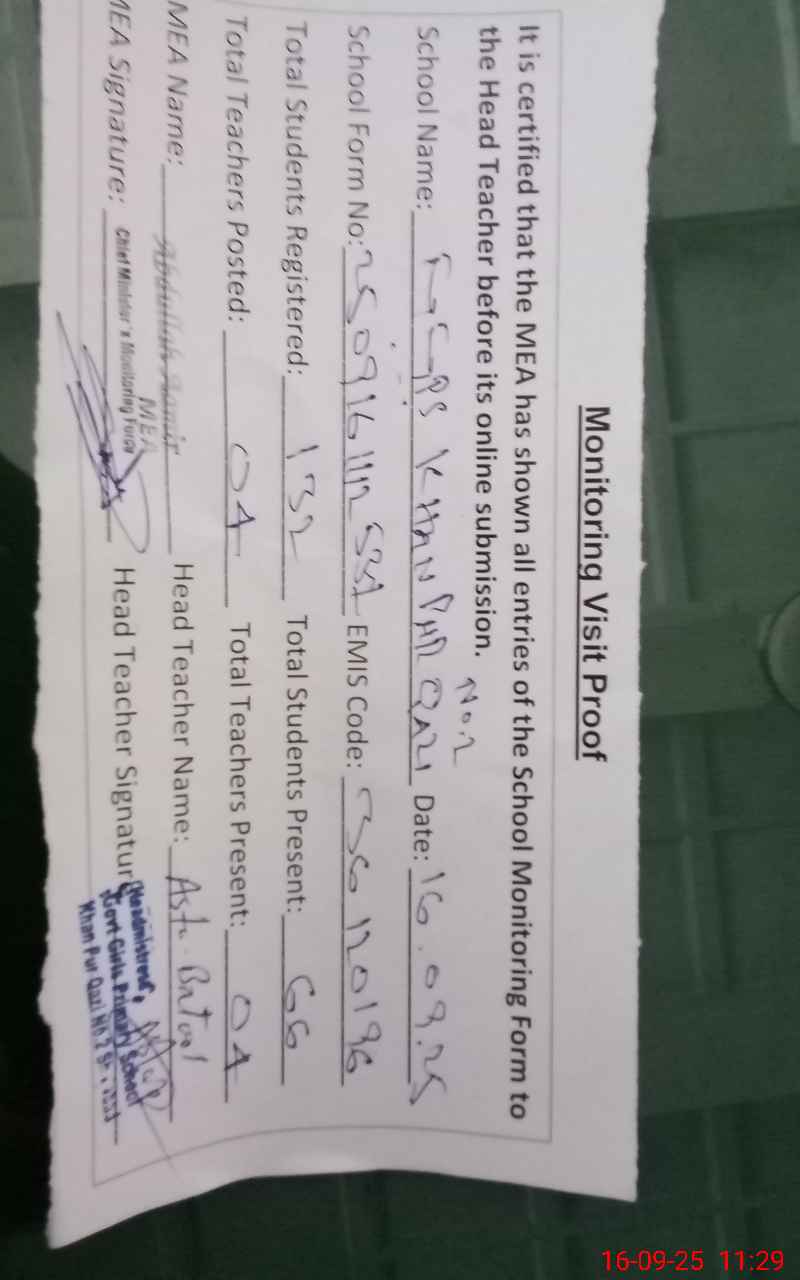 Monitoring Visit Proof
It is certified that the MEA has shown all entries of the School Monitoring Form to
the Head Teacher before its online submission.
No.2
School Name: GGPS KHANPUR QAZI Date: 16.09.25
School Form No: EMIS Code: 36120196
Total Students Registered: 132 Total Students Present: 66
Total Teachers Posted: 04 Total Teachers Present: 04
MEA Name: Abdullah Aamir Head Teacher Name: Batool
MEA
MEA Signature: Chief Minister's Monitoring Force Head Teacher Signature
Headmistress,
Govt Girls Primary School
Khan Pur Qazi No 2
16-09-25 11:29